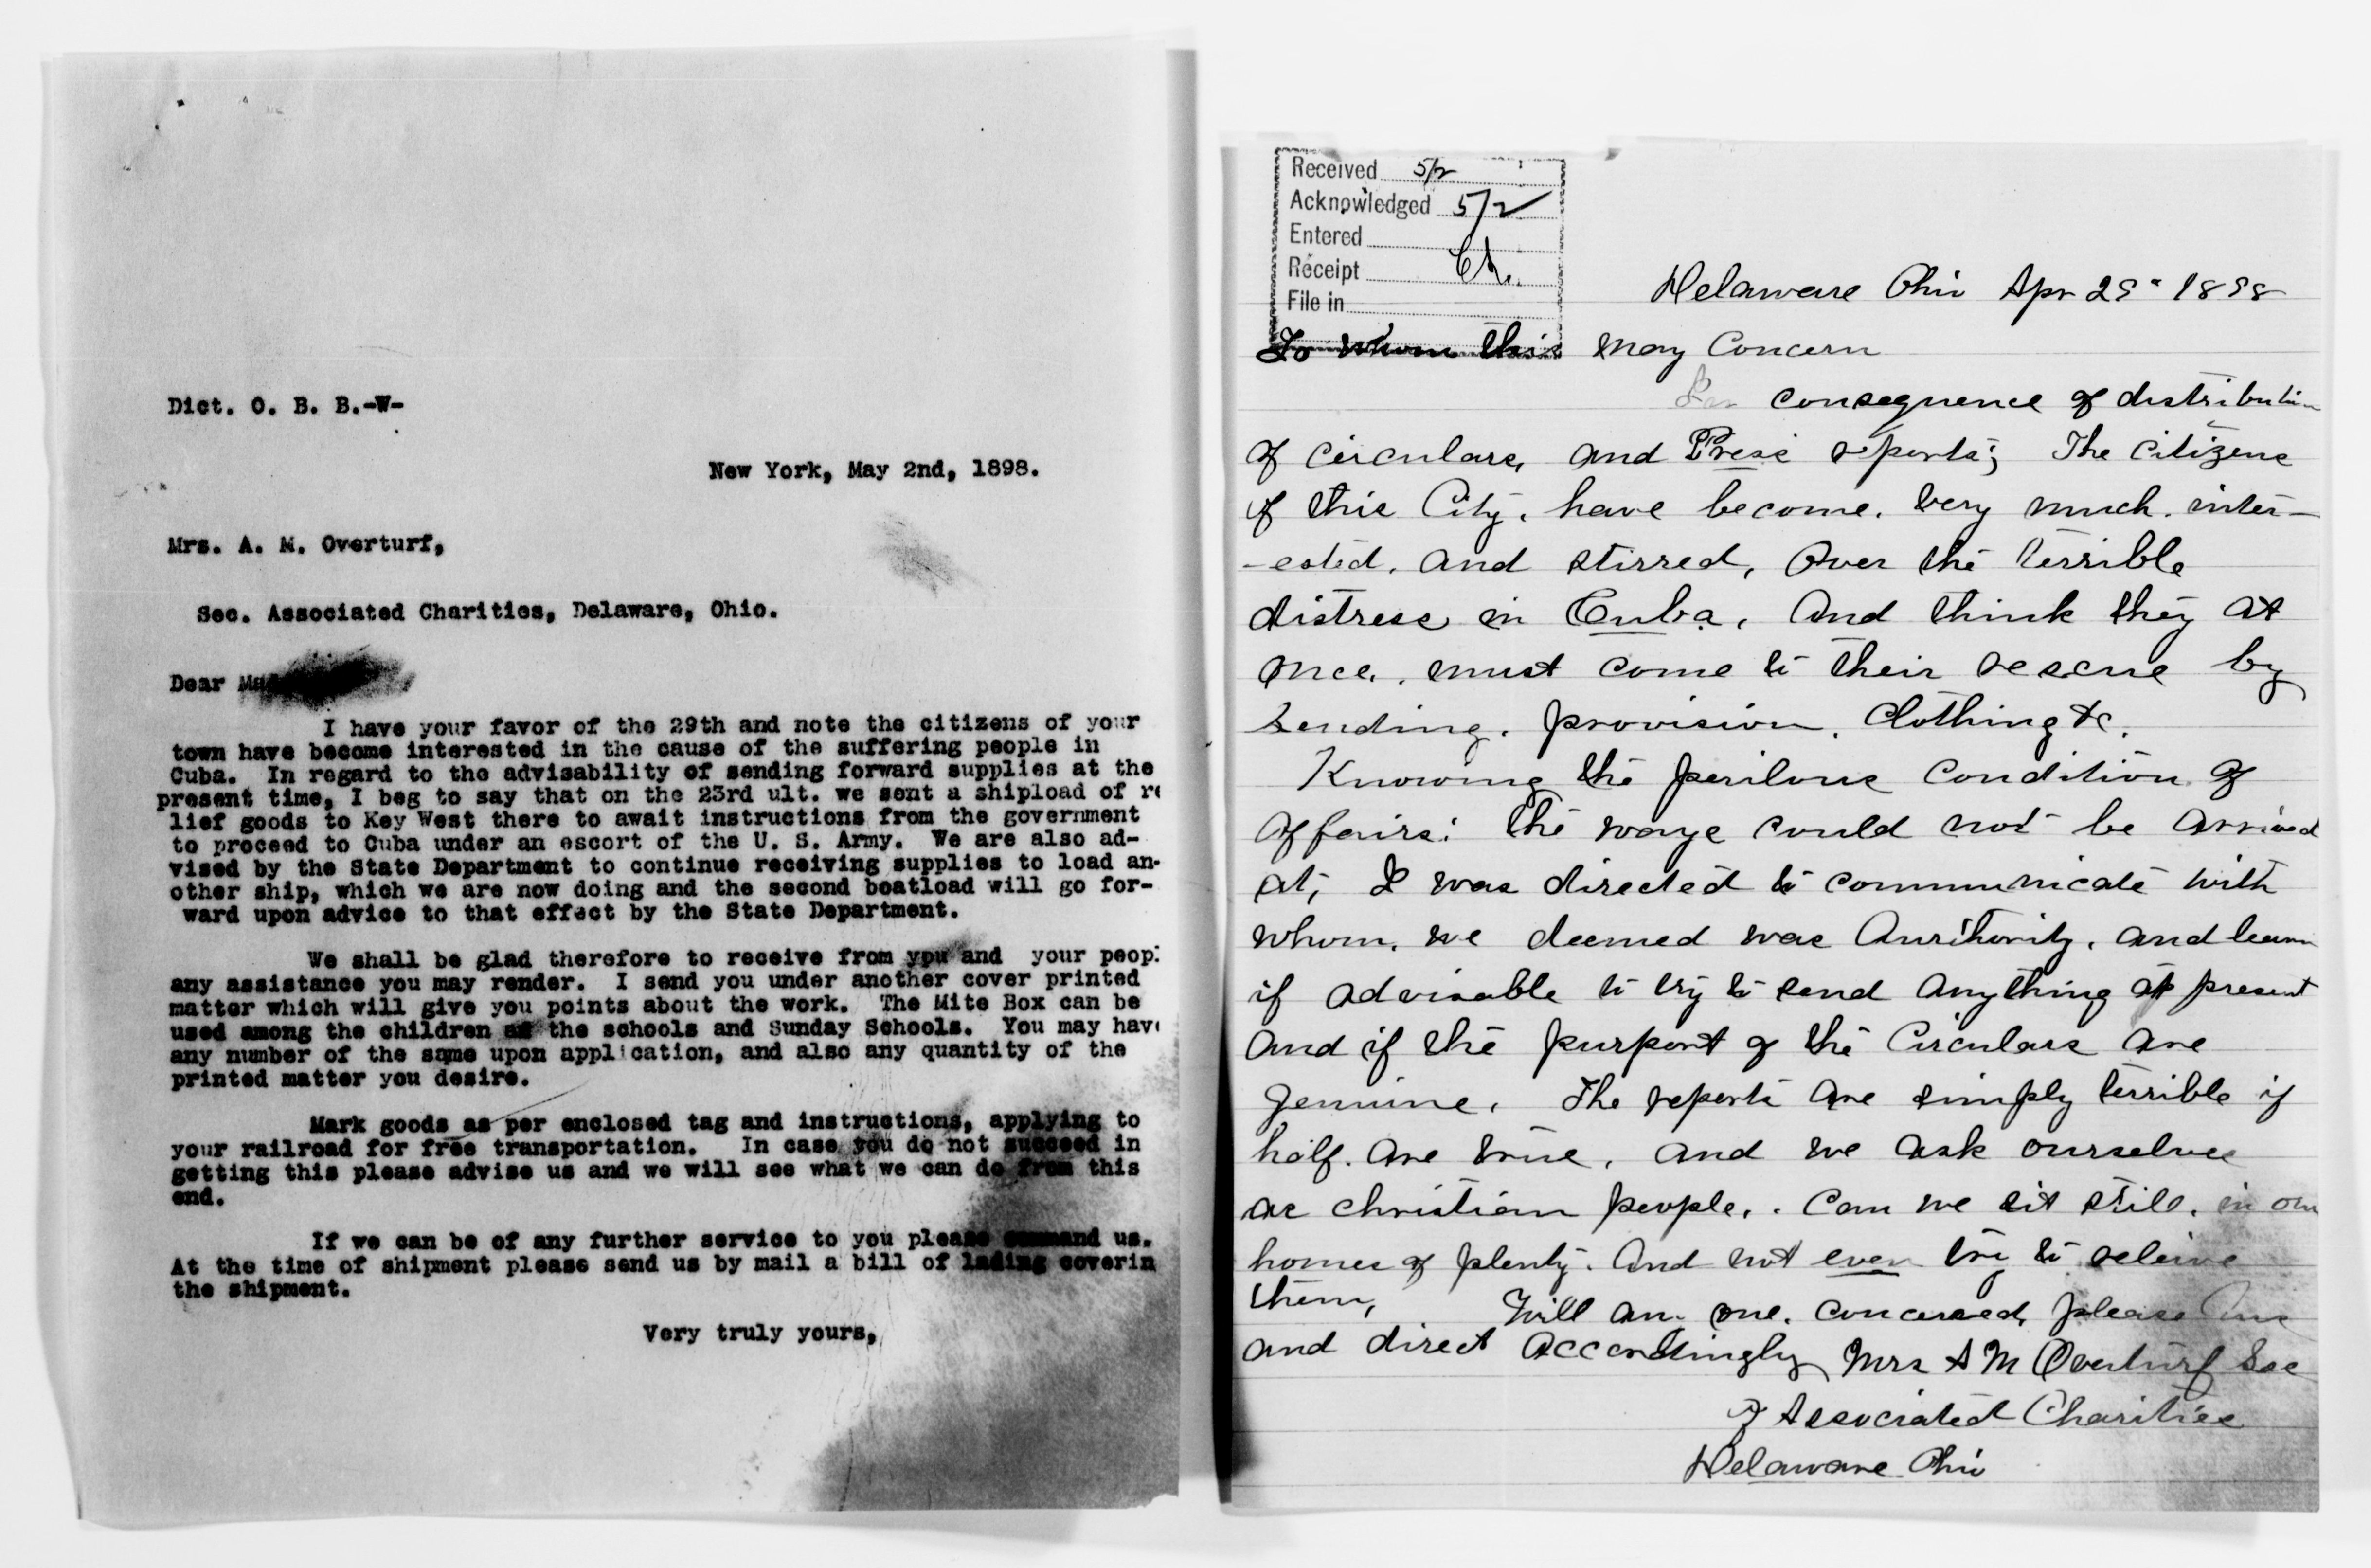 Dict. O. B. B.-W-
New York, May 2nd, 1898.
Mrs. A. M. Overturf,
Sec. Associated Charities, Delaware, Ohio.
Dear
I have your favor of the 29th and note the citizens of your
town have become interested in the cause of the suffering people in
Cuba. In regard to the advisability of sending forward supplies at the
present time, I beg to say that on the 23rd ult. we sent a shipload of re
lief goods to Key West there to await instructions from the government
to proceed to Cuba under an escort of the U. S. Army. We are also ad-
vised by the State Department to continue receiving supplies to load an-
other ship, which we are now doing and the second boatload will go for-
ward upon advice to that effect by the State Department.
We shall be glad therefore to receive from you and your peopl
any assistance you may render. I send you under another cover printed
matter which will give you points about the work. The Mite Box can be
used among the children the schools and Sunday Schools. You may have
any number of the same upon application, and also any quantity of the
printed matter you desire.
Mark goods as per enclosed tag and instructions, applying to
your railroad for free transportation. In case you do not succeed in
getting this please advise us and we will see what we can do from this
end.
If we can be of any further service to you please command us.
At the time of shipment please send us by mail a bill of lading coverin
the shipment.
Very truly yours,
Received 5/2
Acknowledged 5/2
Entered
Receipt
File in
Delaware Ohio Apr 29" 1898
To whom this may Concern
In consequence of distribution
of circulars, and Press reports; The Citizens
of this City, have become, very much inter-
-ested, and stirred, over the terrible
distress in Cuba, And think they at
once, must come to their rescue by
sending, provision, Clothing &c.
Knowing the perilous condition of
affairs: the ways could not be arrived
at, I was directed to communicate with
whom, we deemed was Aurthority, and learn
if advisable to try to send anything at present
and if the purport of the Circulars are
genuine. The reports are simply terrible if
half are true, and we ask ourselves
as christian people, can we sit still, in our
homes of plenty. And not even try to releive
them, Will any one, concerned, please
and direct accordingly Mrs A M Overturf Sec
of Associated Charities
Delaware Ohio